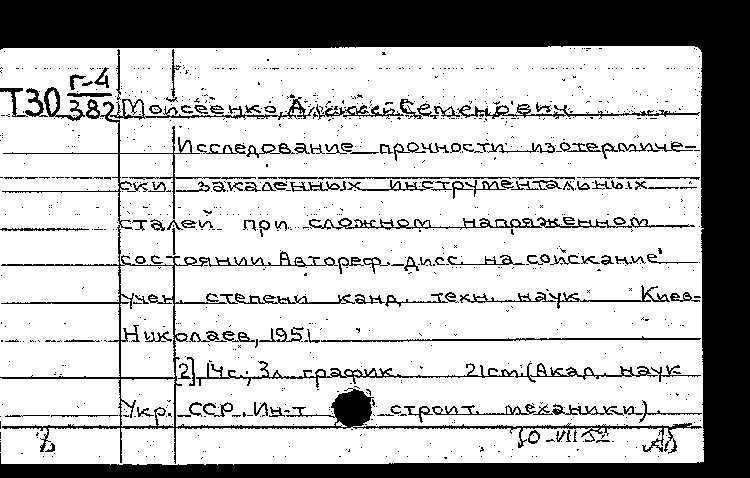 Т30 Г-4
382 Мойсеенко, Алексей Семенович
Исследование прочности изотермиче-
ски закаленных инструментальных
сталей при сложном напряженном
состоянии. Автореф. дисс. на соискание
учен. степени канд. техн. наук. Киев-
Николаев, 1951.
[2], 14с.; 3л. график. 21см. (Акад. наук
Укр. ССР. Ин-т строит. механики).
8 30-VII 52 АБ